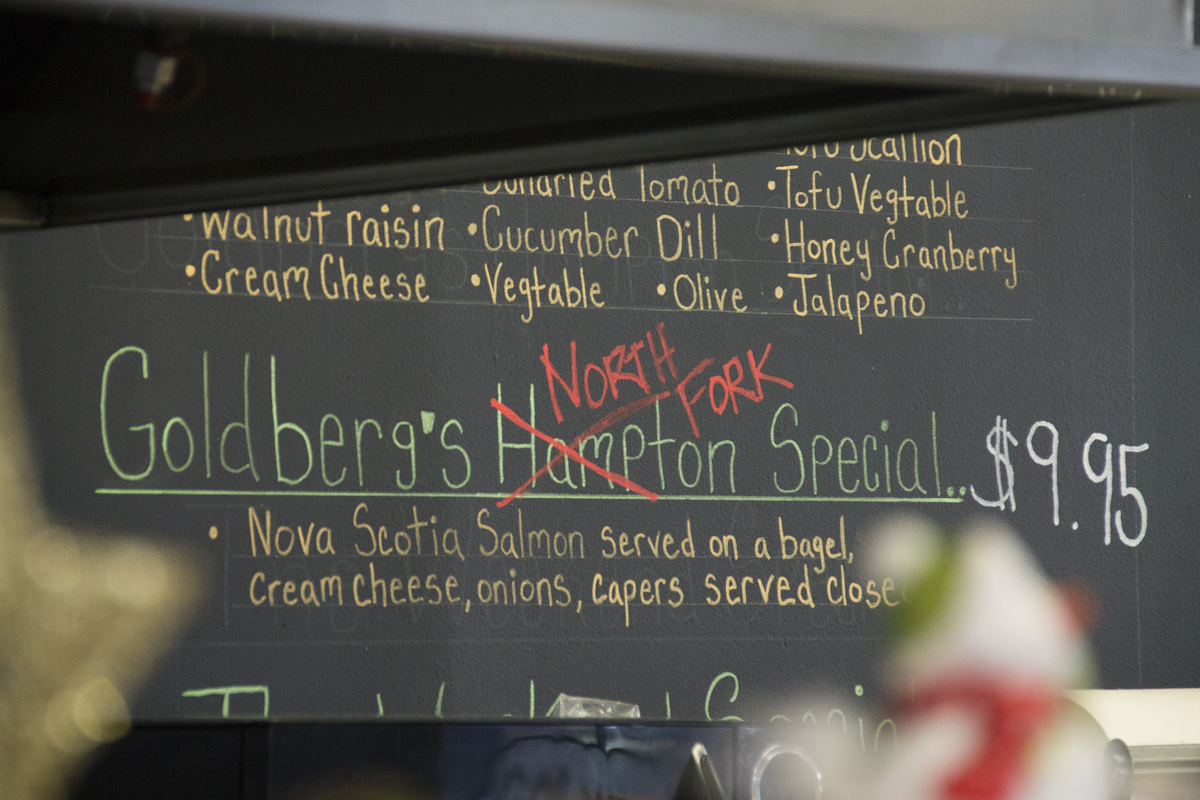 Scallion
Tomato • Tofu Vegtable
• Walnut raisin • Cucumber Dill • Honey Cranberry
• Cream Cheese • Vegtable • Olive • Jalapeno
NORTH FORK
Goldberg's Hampton Special.. $9.95
• Nova Scotia Salmon served on a bagel,
cream cheese, onions, capers served close